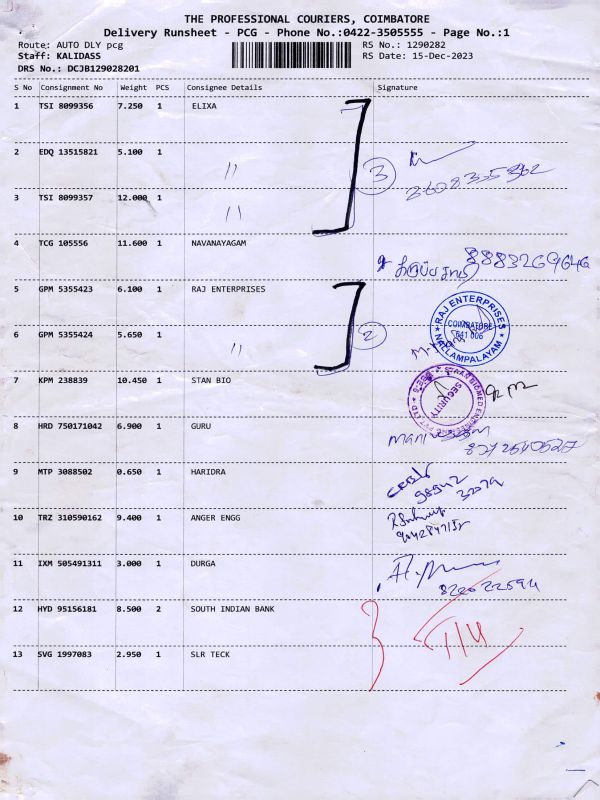 THE PROFESSIONAL COURIERS, COIMBATORE
Delivery Runsheet - PCG - Phone No.:0422-3505555 - Page No.:1
Route: AUTO DLY pcg RS No.: 1290282
Staff: KALIDASS RS Date: 15-Dec-2023
DRS No.: DCJB129028201
S No Consignment No Weight PCS Consignee Details Signature
1 TSI 8099356 7.250 1 ELIXA
2 EDQ 13515821 5.100 1 11
3
3 TSI 8099357 12.000 1 11
4 TCG 105556 11.600 1 NAVANAYAGAM
8883269646
5 GPM 5355423 6.100 1 RAJ ENTERPRISES
RAJ ENTERPRISES
COIMBATORE
641 006
NALLAMPALAYAM
6 GPM 5355424 5.650 1 11 2
7 KPM 238839 10.450 1 STAN BIO
SECURITY
8 HRD 750171042 6.900 1 GURU
9 MTP 3088502 0.650 1 HARIDRA
98942
32079
10 TRZ 310590162 9.400 1 ANGER ENGG
11 IXM 505491311 3.000 1 DURGA
8220022594
12 HYD 95156181 8.500 2 SOUTH INDIAN BANK
13 SVG 1997083 2.950 1 SLR TECK